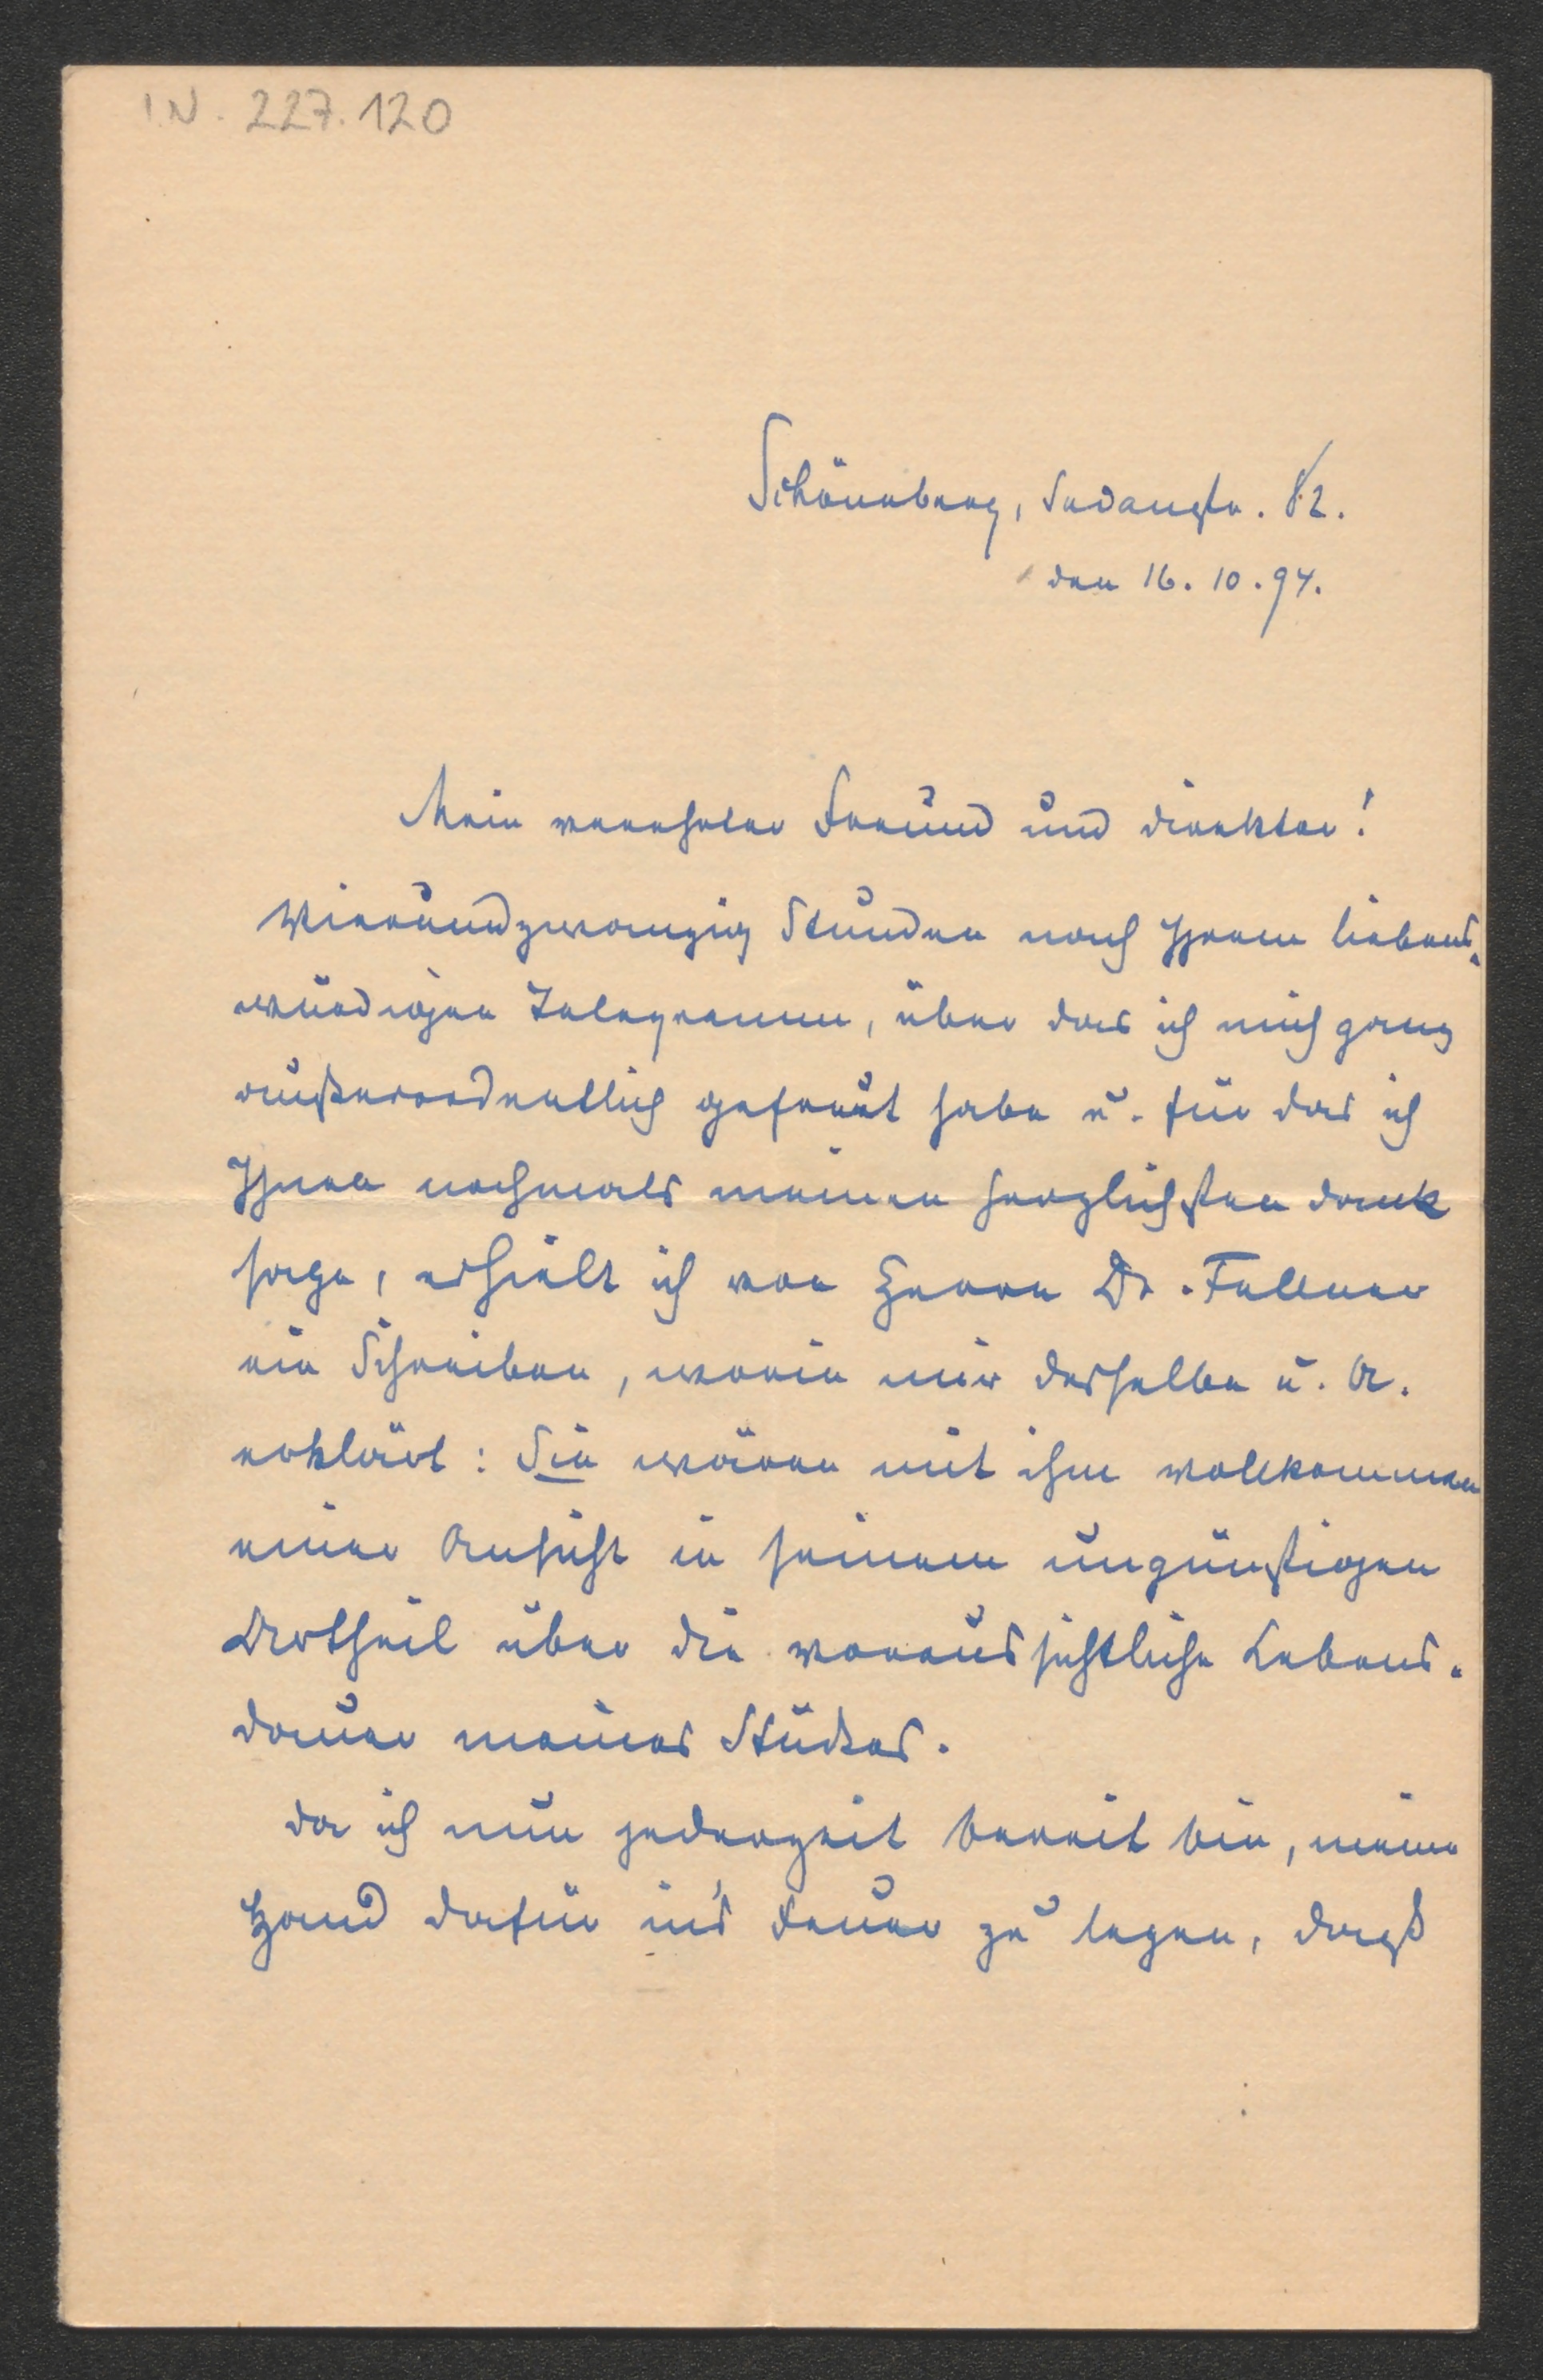 I.N. 227.120
Schöneberg, Sedanstr. 82.
den 16. 10. 94.
Mein verehrter Freund und Direktor!
Vierundzwanzig Stunden nach Ihrem liebens-
würdigen Telegramm, über das ich mich ganz
außerordentlich gefreut habe u. für das ich
Ihnen nochmals meinen herzlichsten Dank
sage, erhielt ich von Herrn Dr. Fellner
ein Schreiben, worin mir derselbe u. A.
erklärt: Sie wären mit ihm vollkommen
einer Ansicht in seinem ungünstigen
Urtheil über die voraussichtliche Lebens-
dauer meines Stückes.
Da ich nun jederzeit bereit bin, meine
Hand dafür in's Feuer zu legen, dass